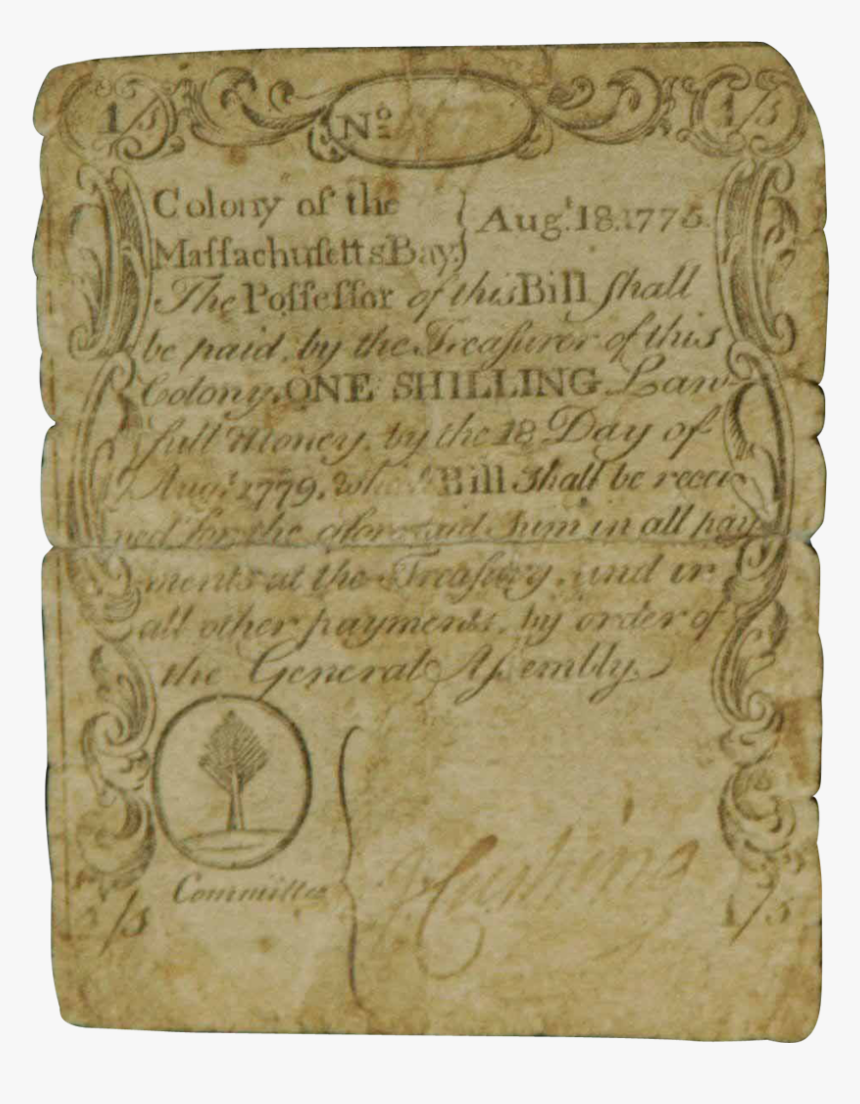 1/s Nº 1/s
Colony of the } Augt. 18. 1775.
Maſſachuſetts Bay.
The Poſſeſſor of this Bill ſhall
be paid, by the Treaſurer of this
Colony, ONE SHILLING Law-
full Money, by the 18 Day of
Augt. 1779, which Bill Shall be recei-
ved for the aforesaid Sum in all pay-
ments at the Treaſury, and in
all other payments, by order of
the General Aſſembly.
Committee { Cushing
1/s 1/s